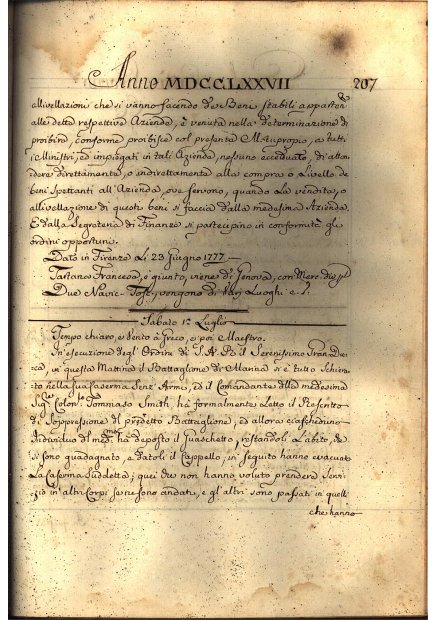 Anno MDCCLXXVII 207
allivellazioni che si vanno facendo de Beni stabili apparten.ti
alle dette respettive Aziende, è venuta nella determinazione di
proibire, conforme proibisce col presente M:tuproprio, a tutti
i Ministri, ed impiegati in tali Aziende, nessuno eccettuato, di atten-
dere direttamente, o indirettamente alla compra o Livello de
beni Spettanti all'Azienda, ove servono, quando La vendita, o
allivellazione di questi beni si faccia dalla medesima Azienda.
E dalla Segreteria di Finanze si partecipino in conformità gli
ordini opportuni.
Dato in Firenze Li 23 Giugno 1777
Tartana Francese, è giunta, viene di Genova, con Merc. div.
Due Navic. Tosc. vengono di varj Luoghi e
Sabato 1.mo Luglio
Tempo chiaro, e Vento à Greco, e poi Maestro.
In esecuzione degl'Ordini di S. A. R. il Serenissimo Gran Du-
ca, in questa Mattina il Battaglione di Marina si è tutto Schie-
rato nella sua Caserma Senz'Armi, ed il Comandante della medesima
Sig.re Colon.lo Tommaso Smith, hà formalmente Letto il Rescritto
di Soppressione del predetto Battaglione, ed allora ciascheduno
Individuo del med.mo hà deposto il Guaschetto, restandoli L'abito, che
si sono guadagnato, e datoli il Cappello, in seguito hanno evacuato
La Caserma Suddetta; quei che non hanno voluto prendere Servi-
zio in altri Corpi se ne sono andati, e gl'altri sono passati in quelli
che hanno